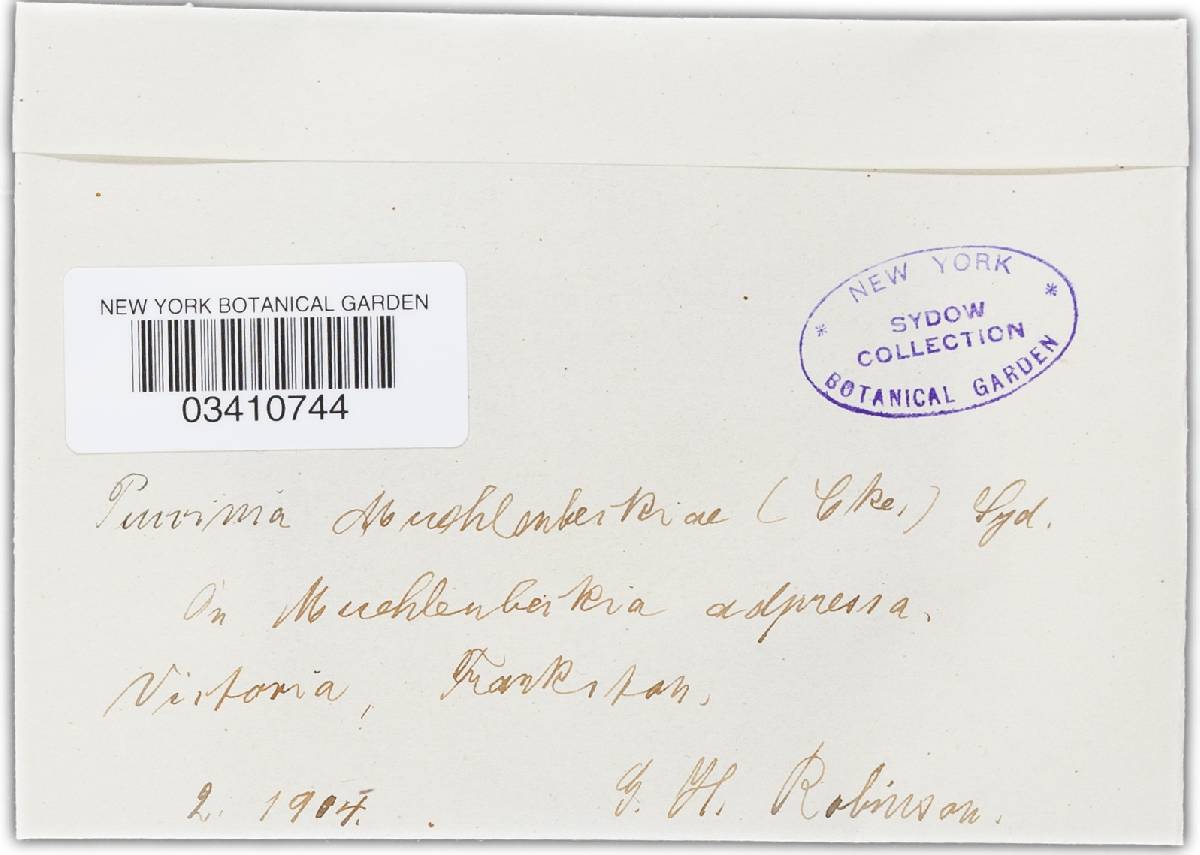 NEW YORK BOTANICAL GARDEN
03410744
NEW YORK
SYDOW
COLLECTION
BOTANICAL GARDEN
Puccinia Muehlenbeckiae (Cke.) Syd.
On Muehlenbeckia adpressa.
Victoria, Frankston.
2. 1904. G. H. Robinson.